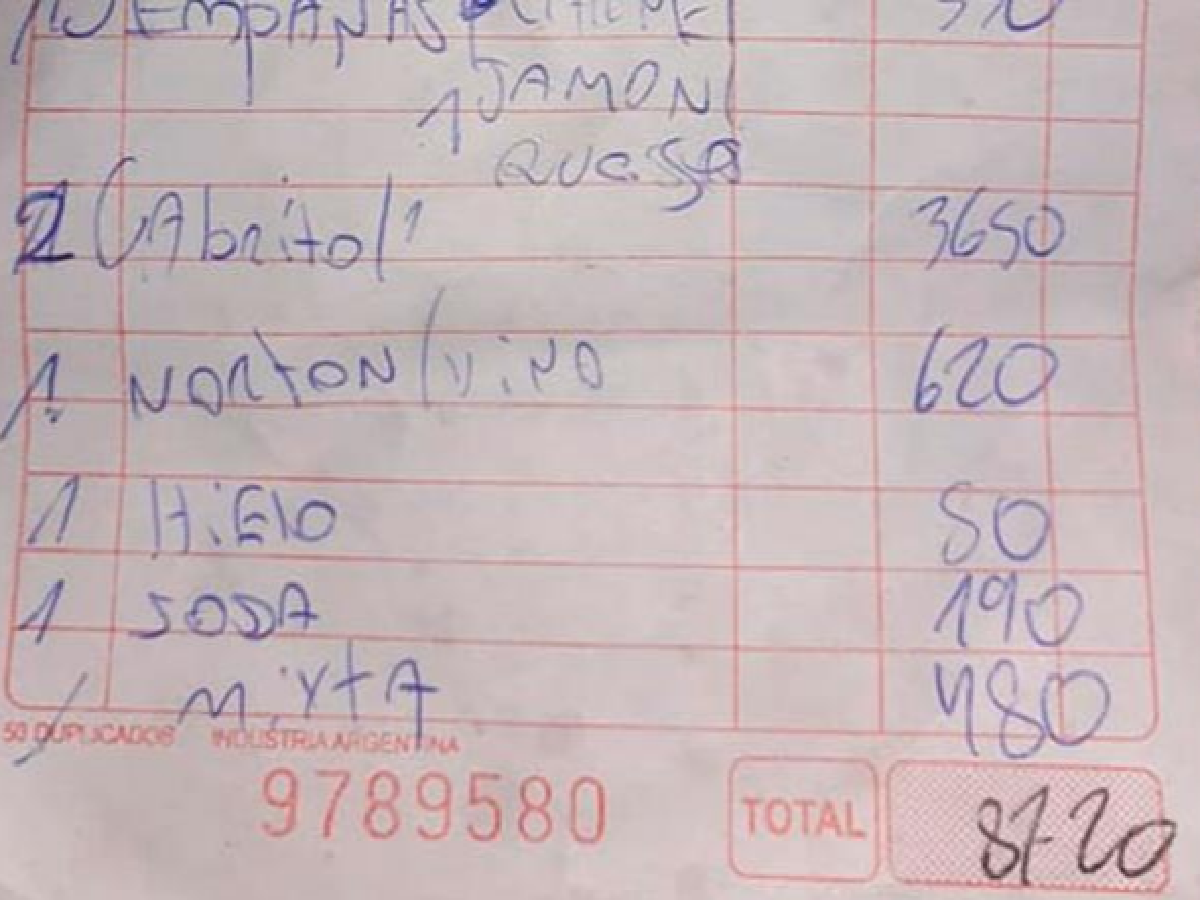 EMPANAS CARNE
1 JAMON
QUESSO
2 CAbrito/1 3650
1 NORTON/ViNO 620
1 HiElO 50
1 SODA 190
1 MixtA 480
50 DUPLICADOS INDUSTRIA ARGENTINA
9789580
TOTAL 8720